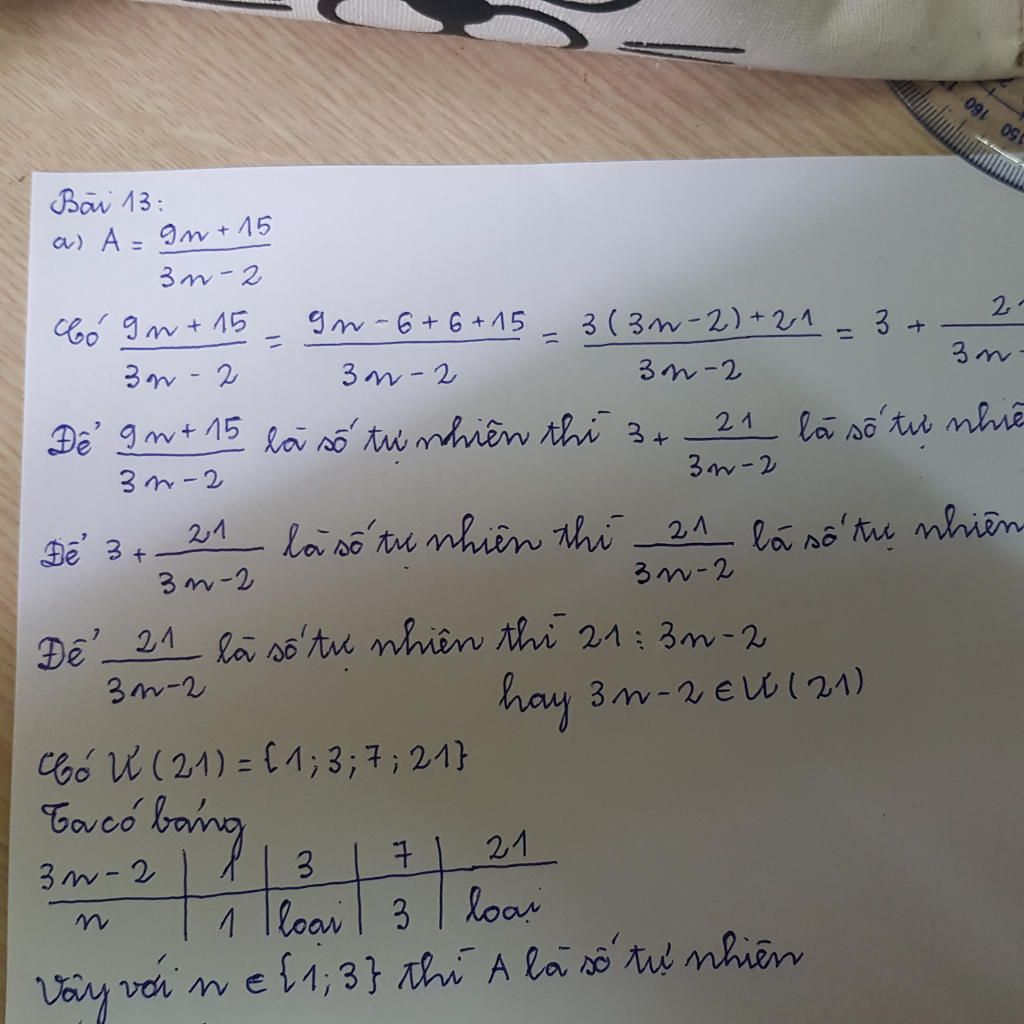 Bài 13:
a) A = \frac{9n + 15}{3n - 2}
Có \frac{9n + 15}{3n - 2} = \frac{9n - 6 + 6 + 15}{3n - 2} = \frac{3(3n - 2) + 21}{3n - 2} = 3 + \frac{21}{3n -
Để \frac{9n + 15}{3n - 2} là số tự nhiên thì 3 + \frac{21}{3n - 2} là số tự nhiê
Để 3 + \frac{21}{3n - 2} là số tự nhiên thì \frac{21}{3n - 2} là số tự nhiên
Để \frac{21}{3n - 2} là số tự nhiên thì 21 ⋮ 3n - 2
hay 3n - 2 ∈ Ư(21)
Có Ư(21) = {1; 3; 7; 21}
Ta có bảng
3n - 2 | 1 | 3 | 7 | 21
n | 1 | loại | 3 | loại
Vậy với n ∈ {1; 3} thì A là số tự nhiên
160
150